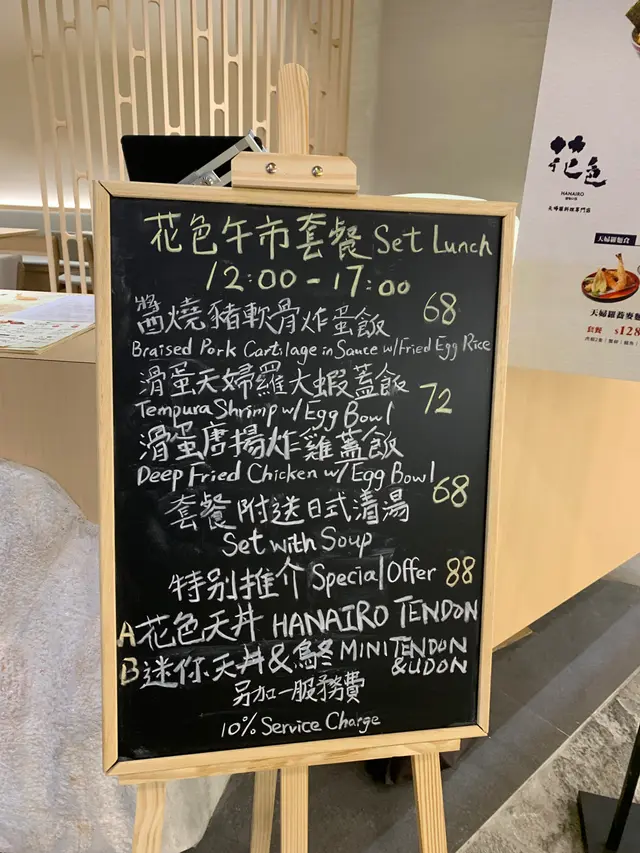 花色午市套餐 Set Lunch
12:00-17:00
醬燒豬軟骨炸蛋飯 68
Braised Pork Cartilage in Sauce w/Fried Egg Rice
滑蛋天婦羅大蝦蓋飯 72
Tempura Shrimp w/ Egg Bowl
滑蛋唐揚炸雞蓋飯
Deep Fried Chicken w/ Egg Bowl 68
套餐附送日式清湯
Set with Soup
特别推介 Special Offer 88
A花色天丼 HANAIRO TENDON
B迷你天丼&烏冬 MINI TENDON
&UDON
另加一服務費
10% Service Charge
花色
HANAIRO
天婦羅料理專門店
天婦羅麵食
天婦羅蕎麥麵
套餐 $128